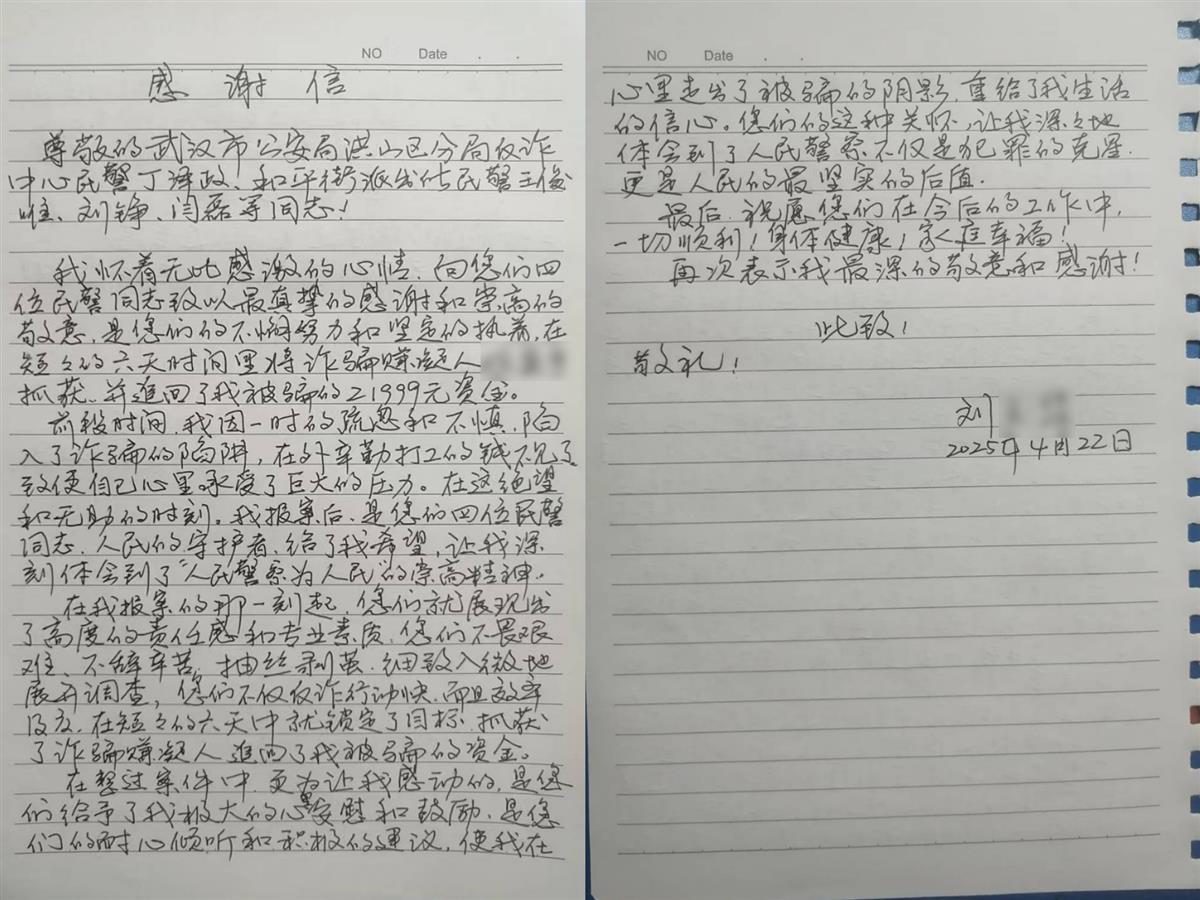 NO Date . .
感谢信
尊敬的武汉市公安局洪山区分局反诈
中心民警丁泽政、和平街派出所民警王俊
唯、刘铮、闫磊等同志!
我怀着无比感激的心情,向您们四
位民警同志致以最真挚的感谢和崇高的
敬意,是您们的不懈努力和坚定的执着,在
短々的六天时间里将诈骗赚凝人
抓获,并追回了我被骗的21999元资金。
前段时间,我因一时的疏忽和不慎,陷
入了诈骗的陷阱,在外辛勤打工的钱不见了
致使自己心里承受了巨大的压力。在这绝望
和无助的时刻。我报案后,是您们四位民警
同志,人民的守护者,给了我希望,让我深
刻体会到了“人民警察为人民”的崇高精神。
在我报案的那一刻起,您们就展现出
了高度的责任感和专业素质,您们不畏艰
难、不辞辛苦,抽丝剥茧,细致入微地
展开调查,您们不仅反诈行动快,而且效率
及友,在短々的六天中就锁定了目标,抓获
了诈骗赚凝人追回了我被骗的资金。
在整过案件中,更为让我感动的,是您
们给予了我极大的心里安慰和鼓励,是您
们的耐心倾听和积极的建议,使我在
NO Date . .
心里走出了被骗的阴影,重给了我生活
的信心。您们的这种关怀,让我深々地
体会到了人民警察不仅是犯罪的克星,
更是人民的最坚实的后盾.
最后,祝愿您们在今后的工作中,
一切顺利!身体健康!家庭幸福!
再次表示我最深的敬意和感谢!
此致!
敬礼!
刘
2025年4月22日